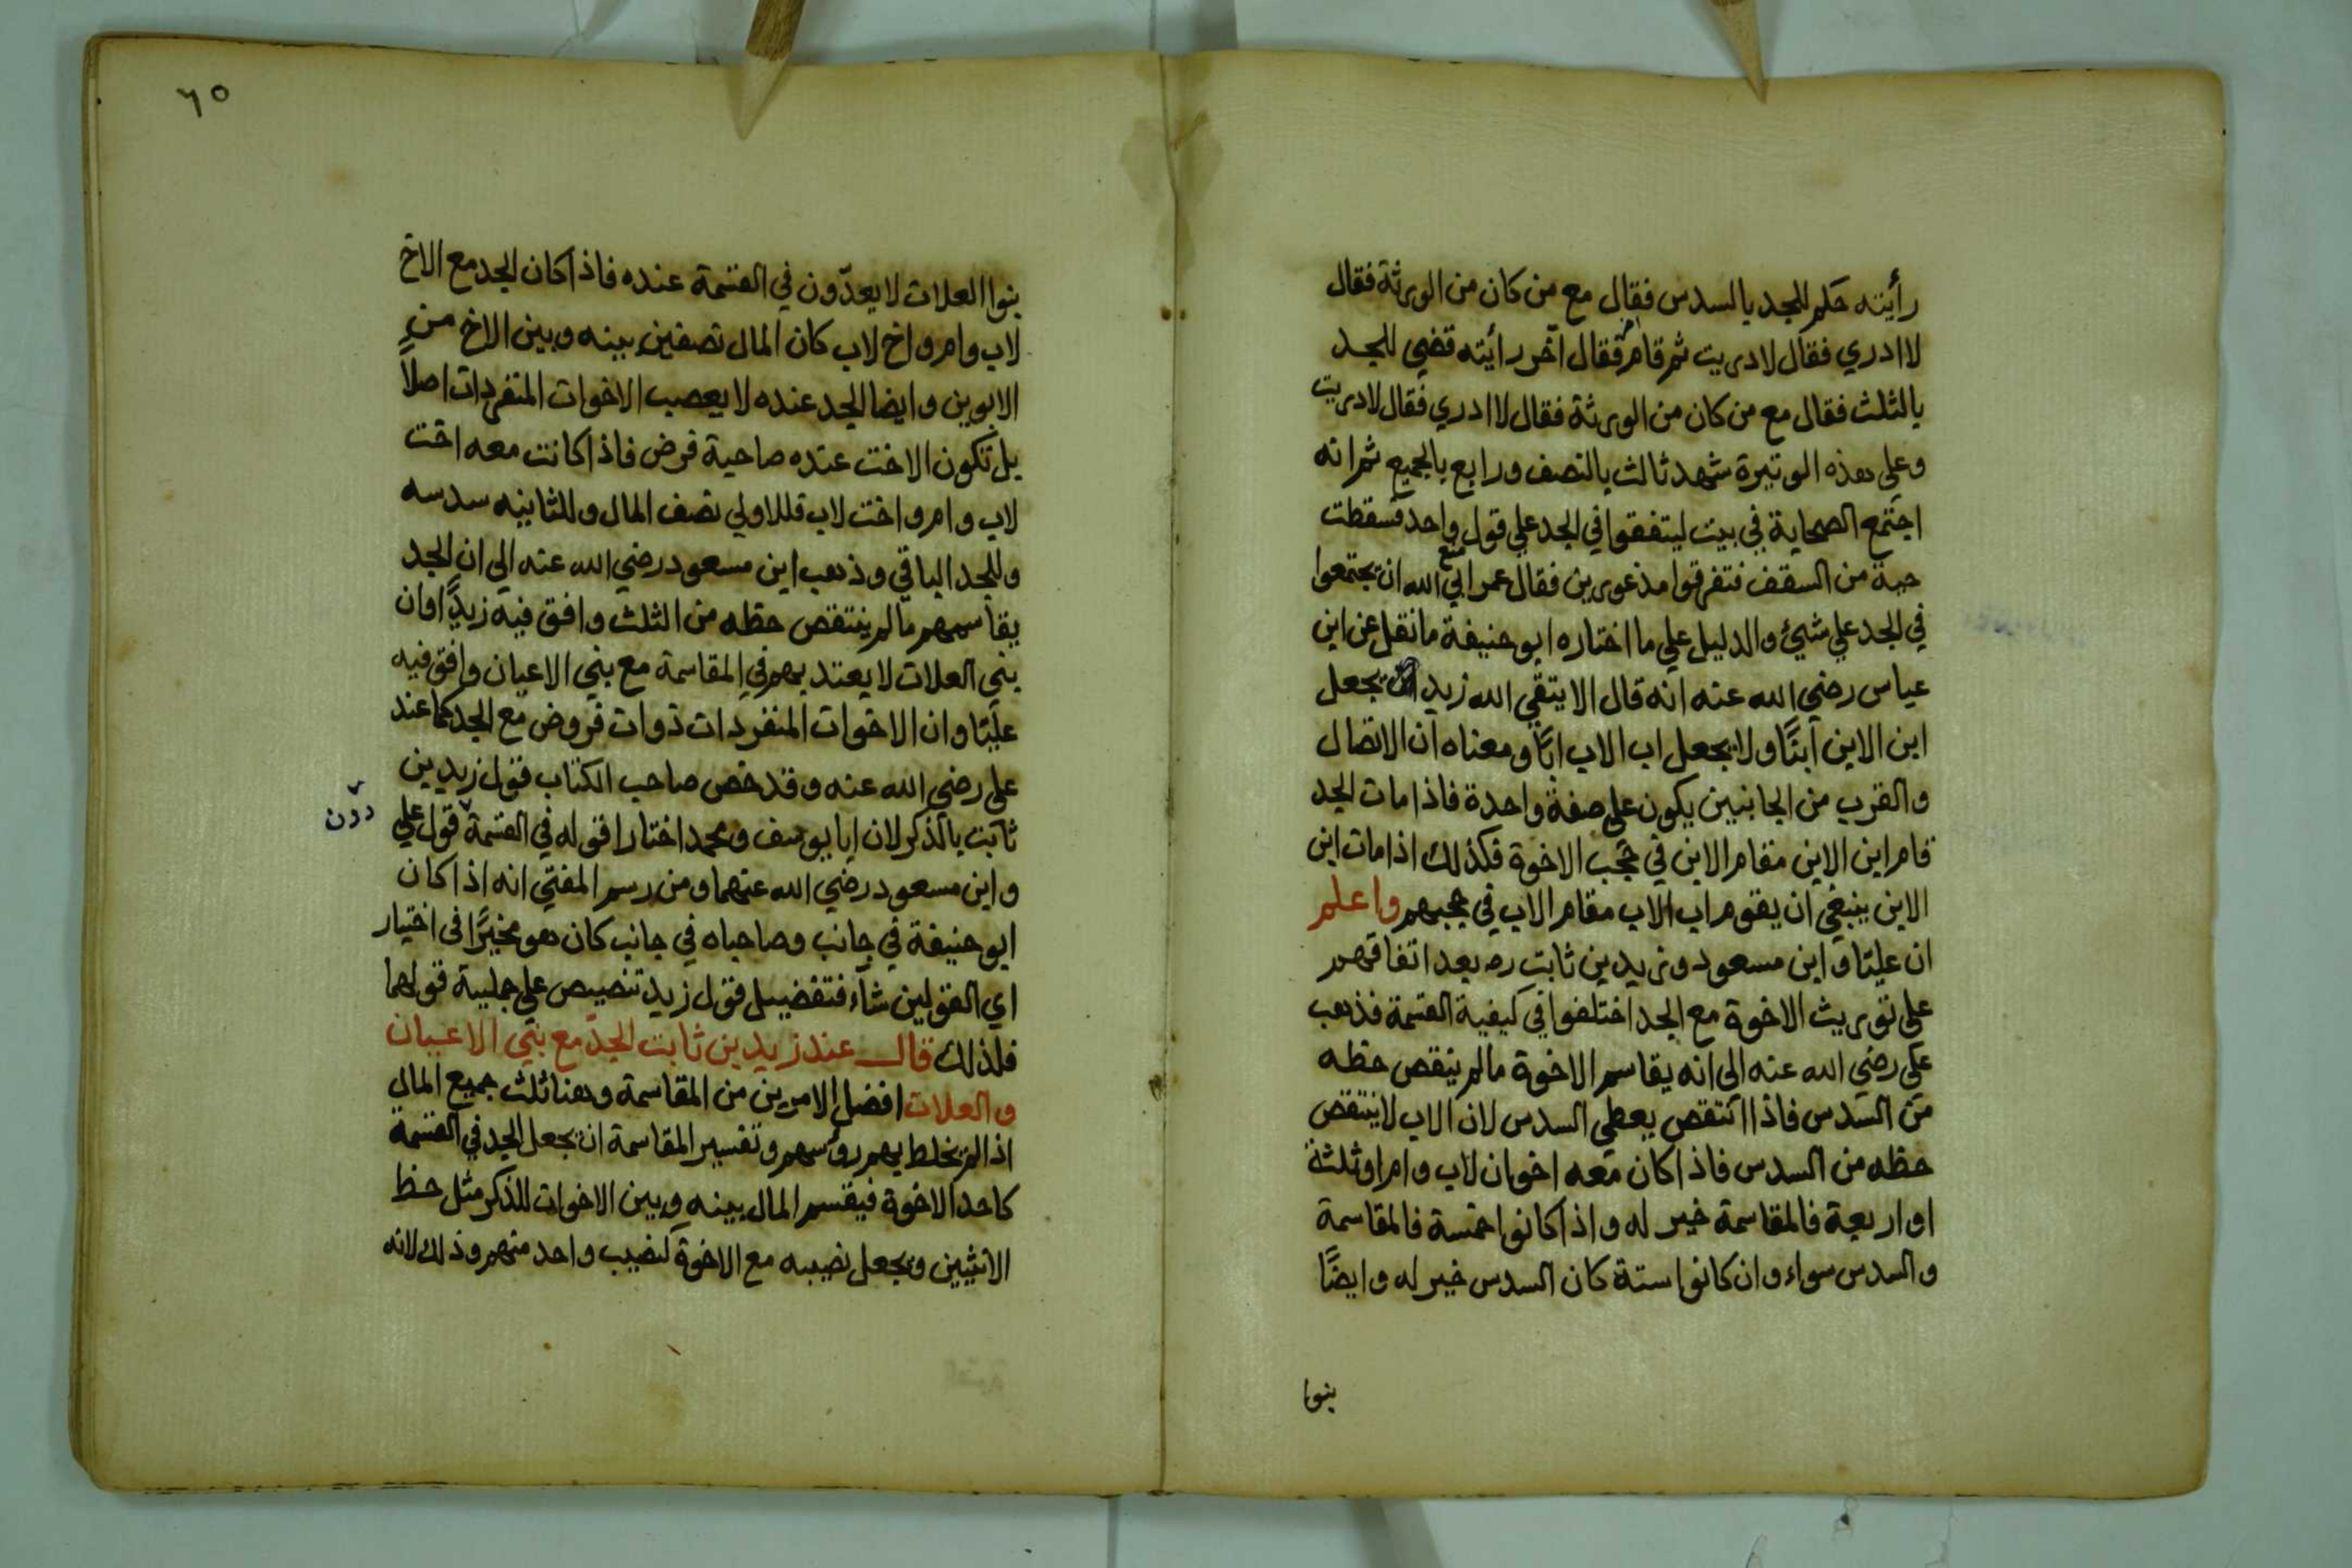 رأيته حكم للجد بالسدس فقال مع من كان من الورثة فقال
لا ادري فقال لا دريت ثم قام فقال آخر رأيته قضي للجد
بالثلث فقال مع من كان من الورثة فقال لا ادري فقال لا دريت
وعلي هذه الوتيرة شهد ثالث بالنصف ورابع بالجميع ثم انه
اجتمع الصحابة في بيت ليتفقوا في الجد علي قول واحد فسقطت
حية من السقف فتفرقوا مذعورين فقال عمر ابي الله ان يجتمعوا
في الجد علي شيئ والدليل علي ما اختاره ابو حنيفة ما نقل عن ابن
عباس رضي الله عنه انه قال الا يتقي الله زيد يجعل
ابن الابن ابنًا ولا يجعل اب الاب ابًا ومعناه ان الاتصال
والقرب من الجانبين يكون علي صفة واحدة فاذا مات الجد
قام ابن الابن مقام الابن في حجب الاخوة فكذلك اذا مات ابن
الابن ينبغي ان يقوم اب الاب مقام الاب في حجبهم واعلم
ان عليًا وابن مسعود وزيد بن ثابت رض بعد اتفاقهم
علي توريث الاخوة مع الجد اختلفوا في كيفية القسمة فذهب
علي رضي الله عنه الي انه يقاسم الاخوة مالم ينقص حظه
من السدس فاذا انتقص يعطي السدس لان الاب لا ينتقص
حظه من السدس فاذا كان معه اخوان لاب وام او ثلثة
او اربعة فالمقاسمة خير له واذا كانوا خمسة فالمقاسمة
والسدس سواء وان كانوا ستة كان السدس خير له وايضًا
بنوا
٦٥
بنوا العلات لا يعدّون في القسمة عنده فاذا كان الجد مع الاخ
لاب وام واخ لاب كان المال نصفين بينه وبين الاخ من
الابوين وايضا الجد عنده لا يعصب الاخوات المنفردات اصلاً
بل تكون الاخت عنده صاحبة فرض فاذا كانت معه اخت
لاب وام واخت لاب فللاولي نصف المال وللثانيه سدسه
وللجد الباقي وذهب ابن مسعود رضي الله عنه الي ان الجد
يقاسمهم مالم ينتقص حظه من الثلث وافق فيه زيدًا وان
بني العلات لا يعتد بهم في المقاسمة مع بني الاعيان وافق فيه
عليًا وان الاخوات المنفردات ذوات فروض مع الجد كما عند
علي رضي الله عنه وقد خص صاحب الكتاب قول زيد بن
ثابت بالذكر لان ابا يوسف ومحمد اختارا قوله في القسمة قول علي
دون
وابن مسعود رضي الله عنهما ومن رسم المفتي انه اذا كان
ابو حنيفة في جانب وصاحباه في جانب كان هو مخيرًا في اختيار
اي القولين شاء فتفضيل قول زيد تنصيص علي جلية قولهما
فلذلك قال عند زيد بن ثابت للجد مع بني الاعيان
والعلات افضل الامرين من المقاسمة وهنا ثلث جميع المال
اذا لم يخلط بهم رؤسهم وتفسير المقاسمة ان يجعل الجد في القسمة
كاحد الاخوة فيقسم المال بينه وبين الاخوات للذكر مثل حظ
الانثيين ويجعل نصيبه مع الاخوة كنصيب واحد منهم وذلك لانه